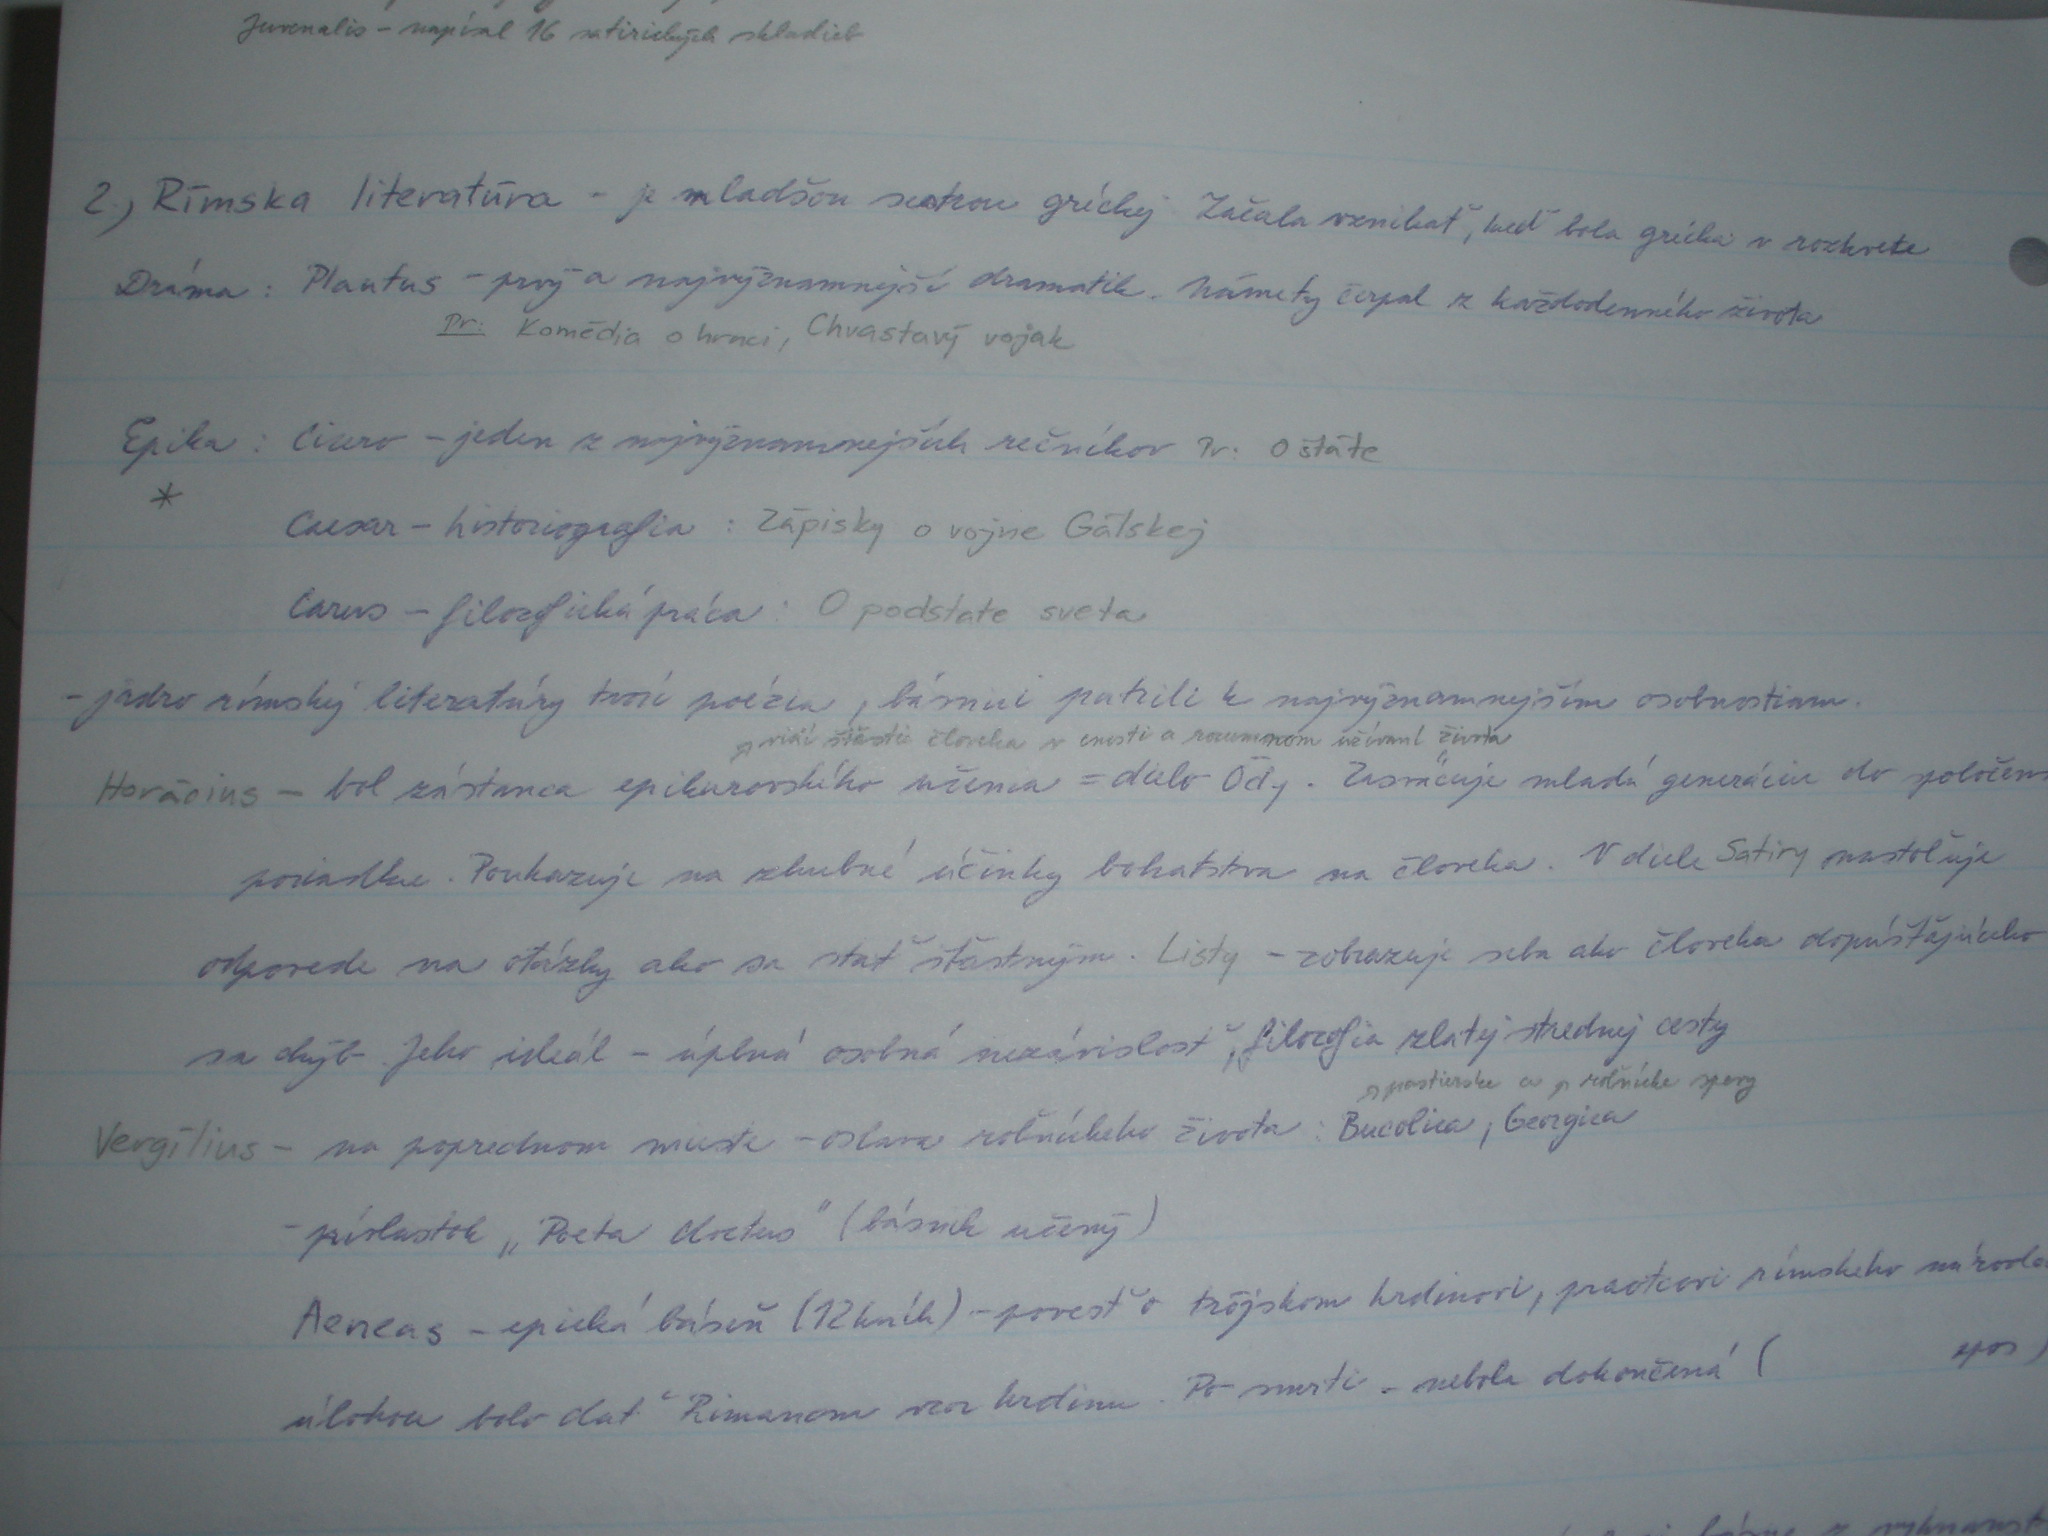 Juvenalis – napísal 16 satirických skladieb
2., Rímska literatúra – je mladšou sestrou gréckej Začala vznikať, keď bola grécka v rozkvete
Dráma : Plautus – prvý a najvýznamnejší dramatik. Námety čerpal z každodenného života
Pr: Komédia o hrnci, Chvastavý vojak
Epika : Cicero – jeden z najvýznamnejších rečníkov Pr: O štáte
*
Caesar – historiografia : Zápisky o vojne Gálskej
Carus – filozofická práca : O podstate sveta
– jadro rímskej literatúry tvorí poézia, básnici patrili k najvýznamnejším osobnostiam.
vidí šťastie človeka v cnosti a rozumnom užívaní života
Horácius – bol zástanca epikurovského učenia = dielo Ódy. Zasväcuje mladú generáciu do spoločens
poriadku. Poukazuje na zhubné účinky bohatstva na človeka. V diele Satiry nastoľuje
odpovede na otázky ako sa stať šťastným. Listy – zobrazuje seba ako človeka dopúšťajúceho
sa chýb. Jeho ideál – úplná osobná nezávislosť, filozofia zlatej strednej cesty
pastierske a roľnícke spevy
Vergílius – na poprednom mieste – oslava roľníckeho života : Bucolica, Georgica
– prívlastok „Poeta doctus" (básnik učený)
Aeneas – epická báseň (12 kníh) – povesť o trójskom hrdinovi, praotcovi rímskeho národa
úlohou bolo dať Rimanom vzor hrdinu. Po smrti – nebola dokončená ( epos)